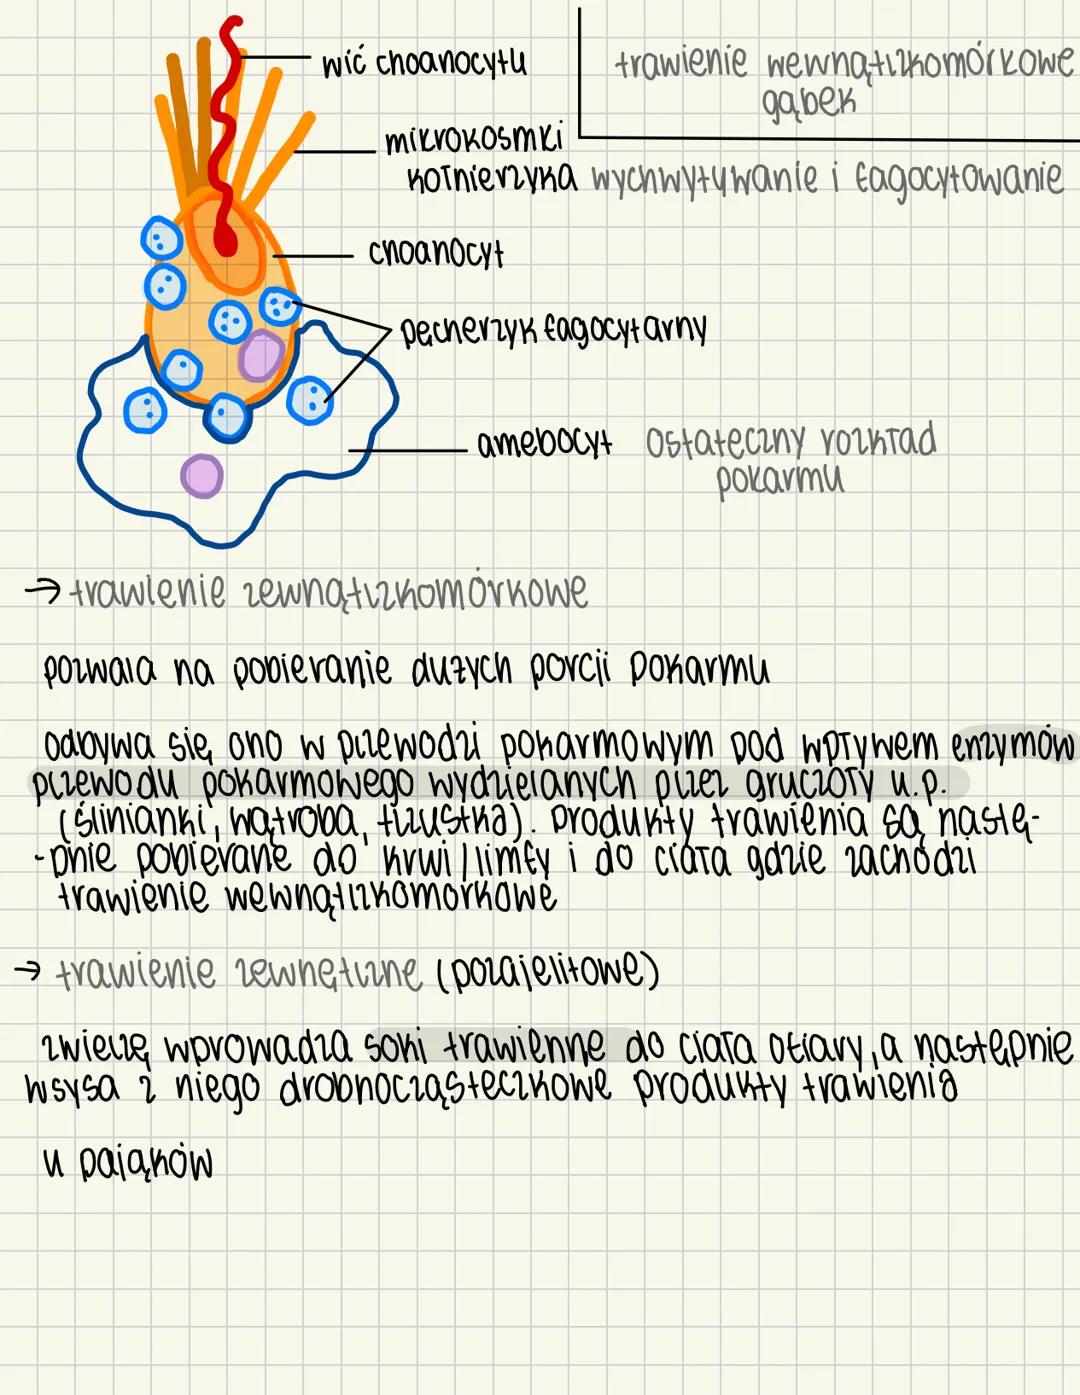 wić choanocytu
trawienie wewnątrzkomórkowe
gąbek
mikrokosmki
kołnierzyka wychwytywanie i fagocytowanie
choanocyt
pęcherzyk fagocytarny
amebocyt ostateczny rozkład
pokarmu
→ trawienie zewnątrzkomórkowe
pozwala na pobieranie dużych porcji pokarmu
odbywa się ono w przewodzi pokarmowym pod wpływem enzymów
przewodu pokarmowego wydzielanych przez gruczoły u.p.
(ślinianki, wątroba, trzustka). Produkty trawienia są nastę-
-pnie pobierane do krwi/limfy i do ciała gdzie zachodzi
trawienie wewnątrzkomórkowe
→ trawienie zewnętrzne (pozajelitowe)
zwierzę wprowadza soki trawienne do ciała ofiary, a następnie
wsysa z niego drobnocząsteczkowe produkty trawienia
u pająków